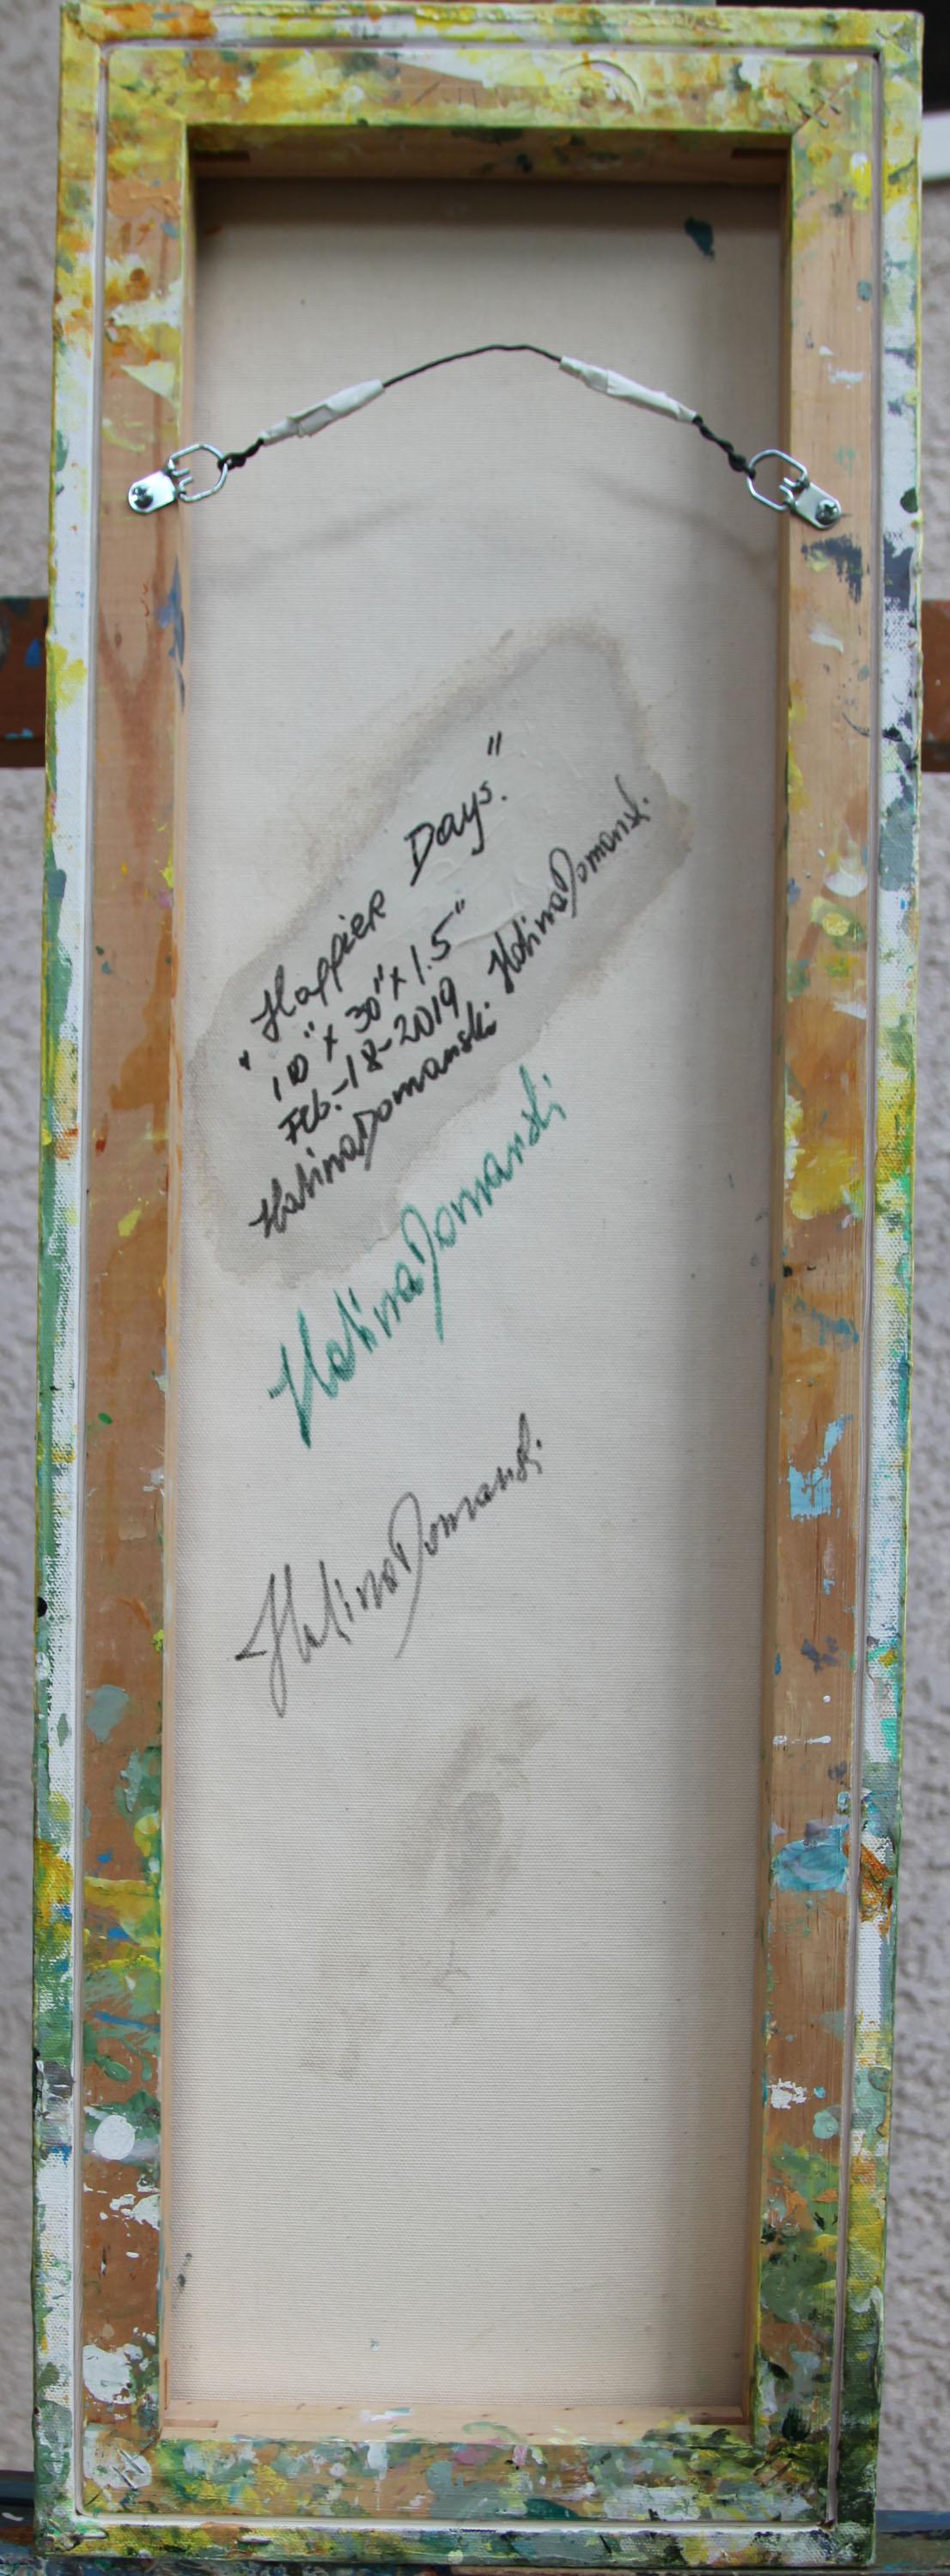 "Happier Days."
10" x 30" x 1.5"
Feb.-18-2019
Halina Domanski. Halina Domanski.
Halina Domanski
Halina Domanski